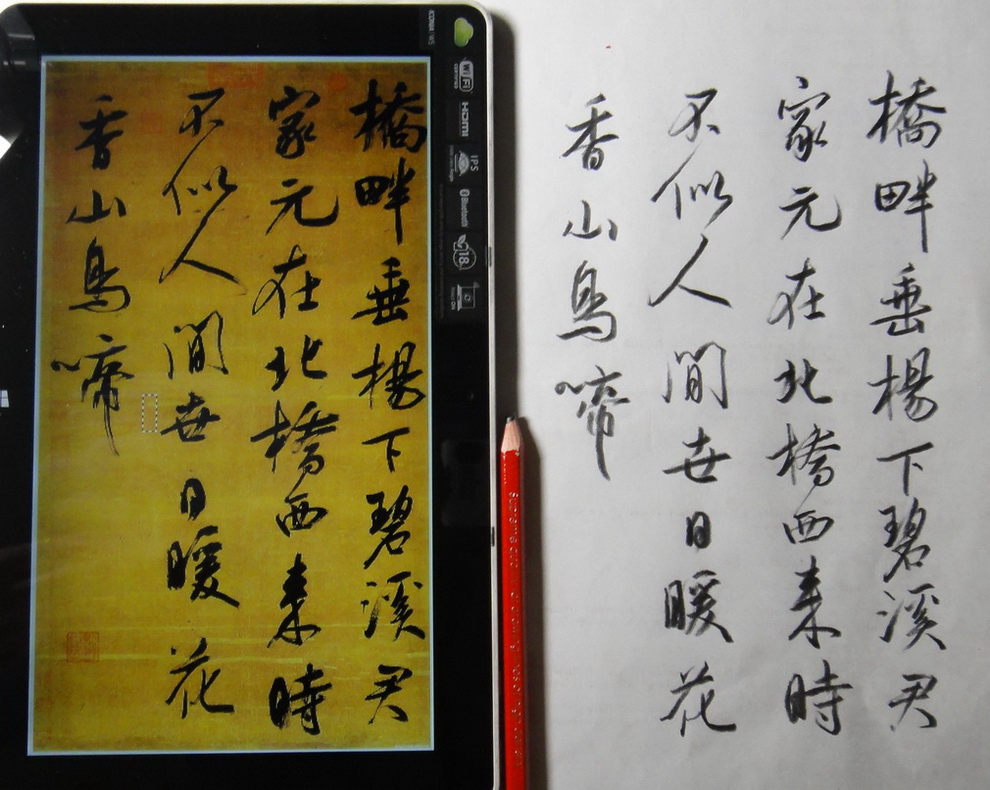 橋畔垂楊下碧溪君
家元在北橋西來時
不似人間世日暖花
香山鳥啼
ICONIA W5
Wi Fi
CERTIFIED
HDMI
IPS
Bluetooth
18
橋畔垂楊下碧溪君
家元在北橋西來時
不似人間世日暖花
香山鳥啼